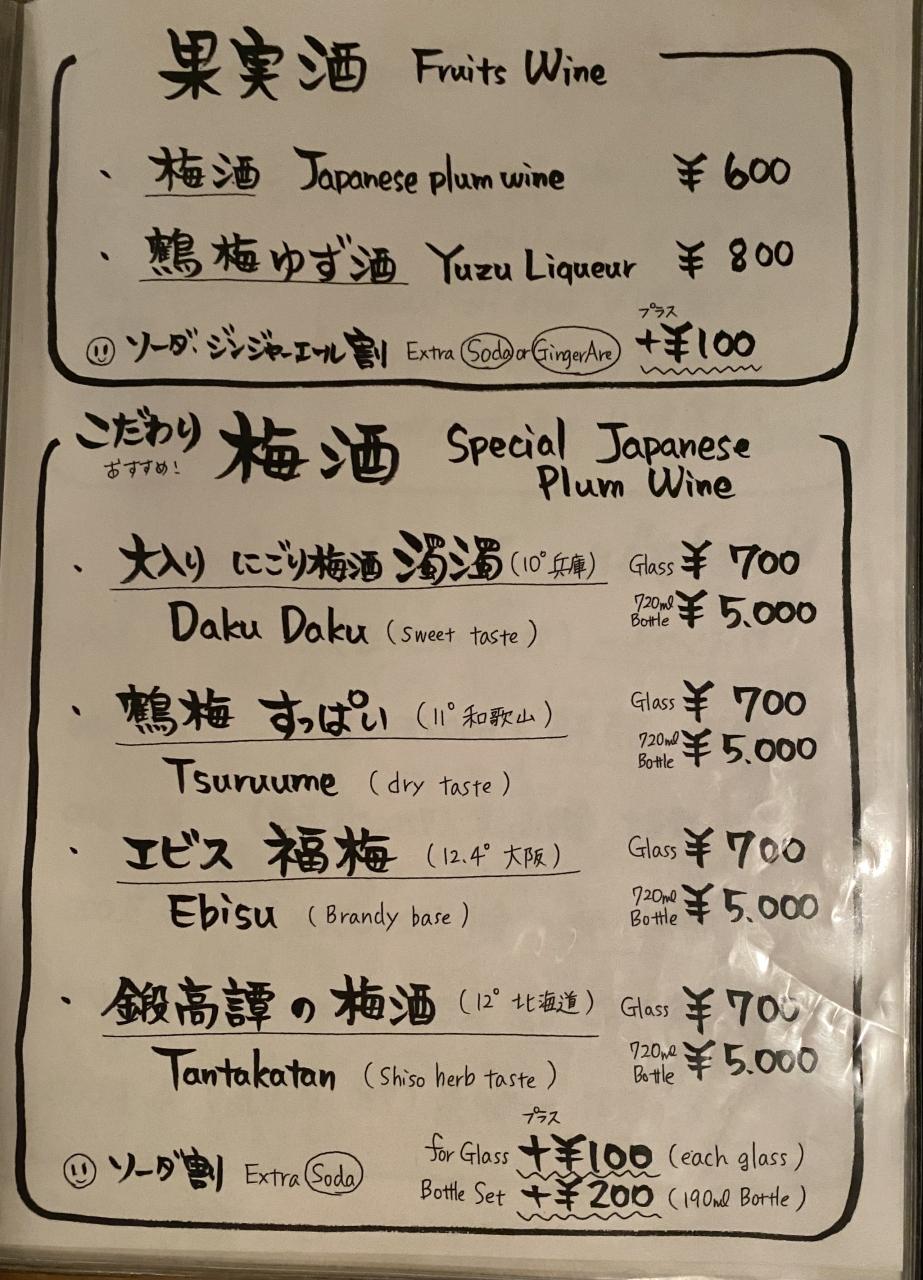 果実酒 Fruits Wine
・ 梅酒 Japanese plum wine ¥600
・ 鶴梅ゆず酒 Yuzu Liqueur ¥800
プラス
ソーダ・ジンジャーエール割 Extra Soda or GingerAre +¥100
こだわり 梅酒 Special Japanese
おすすめ! Plum Wine
・ 大入り にごり梅酒 濁濁 (10° 兵庫) Glass ¥700
Daku Daku (sweet taste) 720ml Bottle ¥5.000
・ 鶴梅 すっぱい (11° 和歌山) Glass ¥700
720ml Bottle ¥5.000
Tsuruume (dry taste)
・ エビス 福梅 (12.4° 大阪) Glass ¥700
Ebisu (Brandy base) 720ml Bottle ¥5.000
・ 鍛高譚の梅酒 (12° 北海道) Glass ¥700
Tantakatan (Shiso herb taste) 720ml Bottle ¥5.000
プラス
ソーダ割 Extra Soda for Glass +¥100 (each glass)
Bottle Set +¥200 (190ml Bottle)